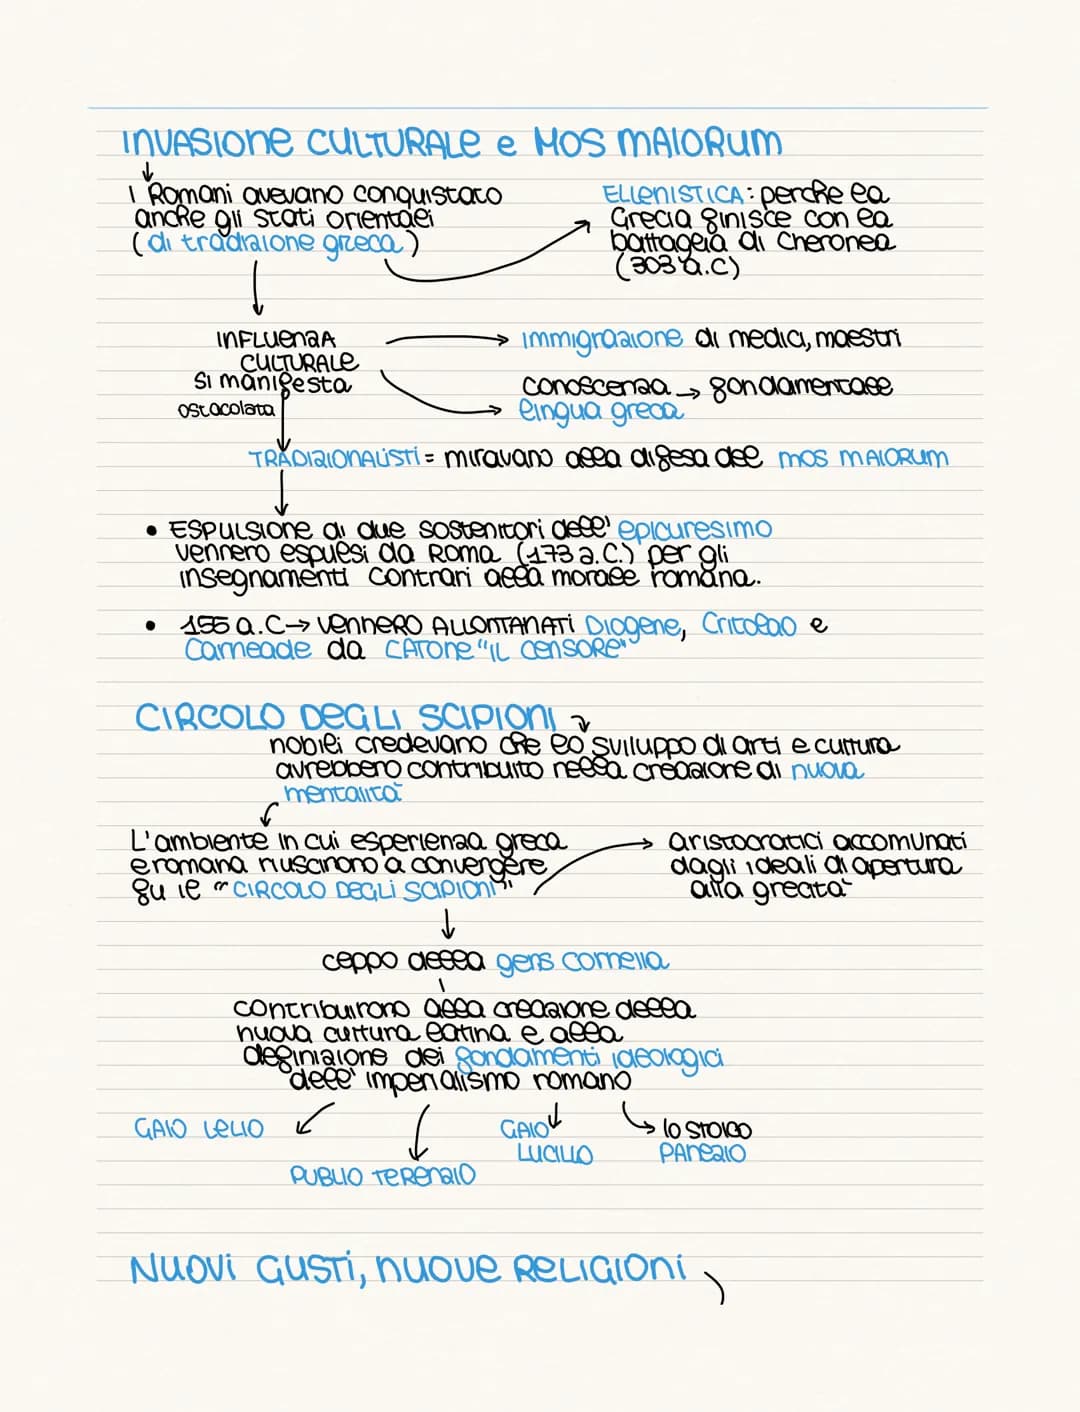 INVASIONE CULTURALE e MOS MAIORUM
I Romani avevano conquistato
anche gli stati orientali
(di tradizione greca)
ELLENISTICA: perché la
Grecia finisce con la
battaglia di Cheronea
(303 a.C)
INFLUENZA
CULTURALE
si manifesta
ostacolata
immigrazione di medici, maestri
conoscenza → fondamentale
lingua greca
TRADIZIONALISTI = miravano alla difesa del mos MAIORUM
• ESPULSIONE di due sostenitori dell' epicuresimo
vennero espulsi da Roma (173 a.C.) per gli
insegnamenti contrari alla morale romana.
• 155 a.C → vennero ALLONTANATI Diogene, Critolao e
Carneade da CATONE "IL CENSORE"
CIRCOLO DEGLI SCIPIONI
nobili credevano che lo sviluppo di arti e cultura
avrebbero contribuito nella creazione di nuova
mentalità
L'ambiente in cui esperienza greca
e romana riuscirono a convergere
fu il "CIRCOLO DEGLI SCIPIONI"
aristocratici accomunati
dagli ideali di apertura
alla grecità
ceppo della gens cornelia
contribuirono alla creazione della
nuova cultura latina e alla
definizione dei fondamenti ideologici
dell' imperialismo romano
GAIO LELIO
PUBLIO TERENZIO
GAIO
LUCILIO
lo STOICO
PANEZIO
NUOVI GUSTI, NUOVE RELIGIONI